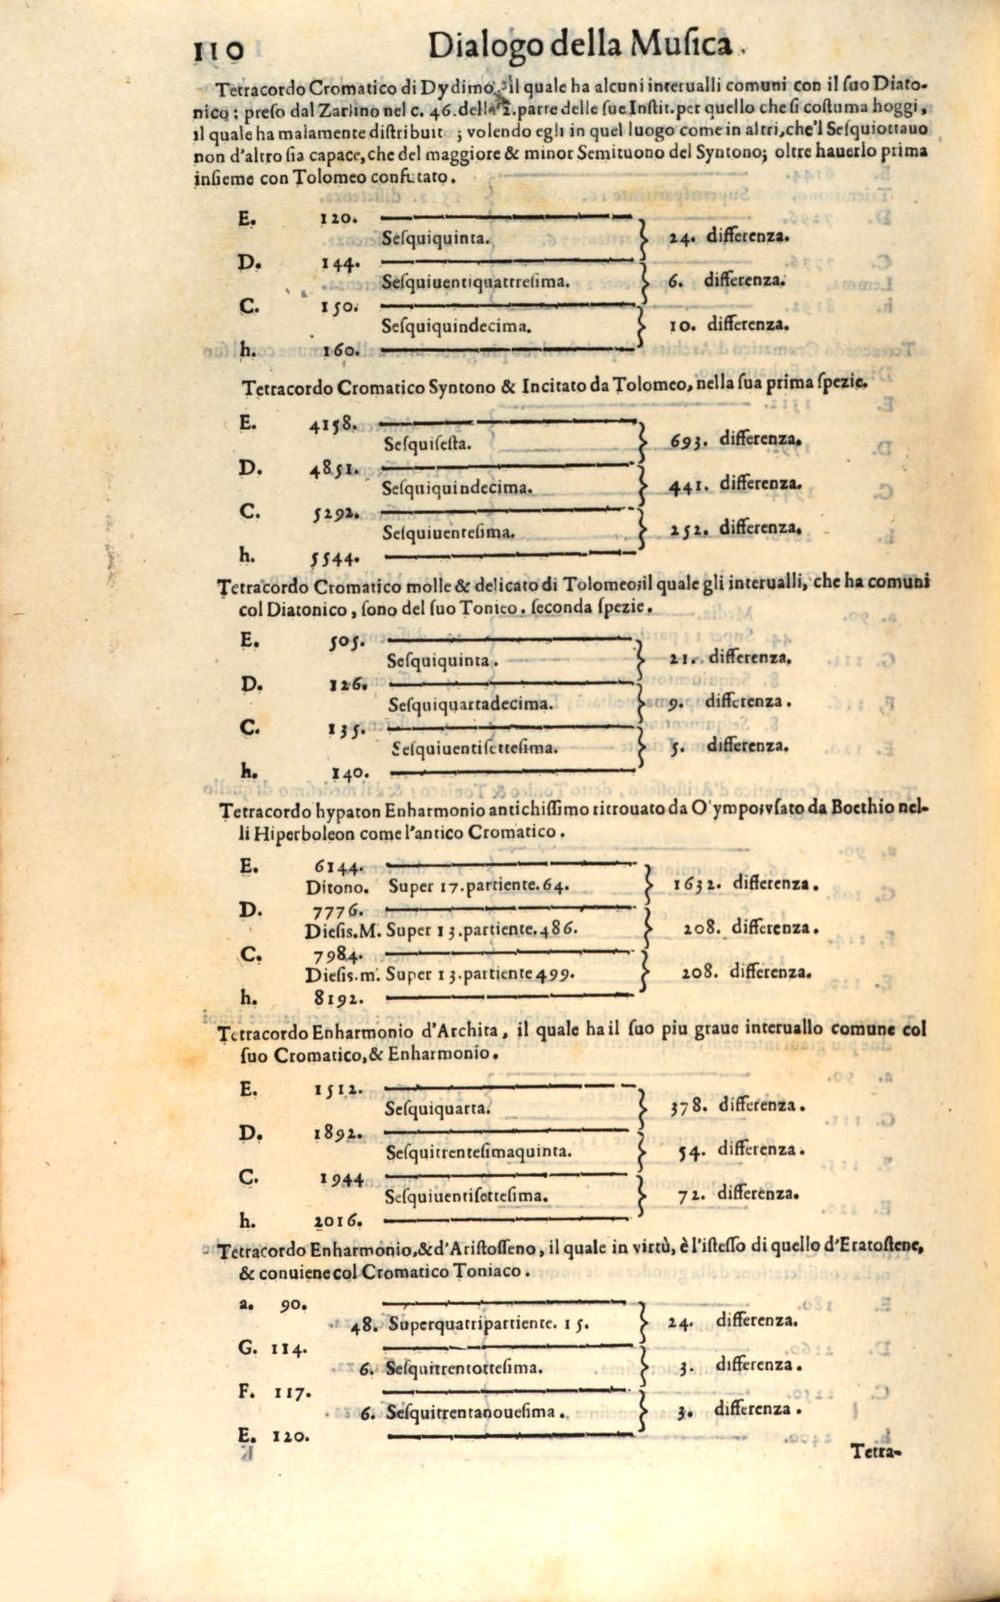 110 Dialogo della Muſica.
Tetracordo Cromatico di Dydimo, il quale ha alcuni interualli comuni con il ſuo Diato-
nico: preſo dal Zarlino nel c. 46. della 2. parte delle ſue Inſtit. per quello che ſi coſtuma hoggi,
il quale ha malamente diſtribuit ; volendo egli in quel luogo come in altri, che'l Seſquiottauo
non d'altro ſia capace, che del maggiore & minor Semituono del Syntono; oltre hauerlo prima
inſieme con Tolomeo confutato.
E. 120.
Seſquiquinta. 24. differenza.
D. 144.
Seſquiuentiquattreſima. 6. differenza.
C. 150.
Seſquiquindecima. 10. differenza.
h. 160.
Tetracordo Cromatico Syntono & Incitato da Tolomeo, nella ſua prima ſpezie.
E. 4158.
Seſquiſeſta. 693. differenza.
D. 4851.
Seſquiquindecima. 441. differenza.
C. 5292.
Seſquiuenteſima. 252. differenza.
h. 5544.
Tetracordo Cromatico molle & delicato di Tolomeo; il quale gli interualli, che ha comuni
col Diatonico, ſono del ſuo Tonico. ſeconda ſpezie.
E. 505.
Seſquiquinta. 21. differenza.
D. 126.
Seſquiquartadecima. 9. differenza.
C. 135.
Seſquiuentiſetteſima. 5. differenza.
h. 140.
Tetracordo hypaton Enharmonio antichiſſimo ritrouato da O'ympo; vſato da Boethio nel-
li Hiperboleon come l'antico Cromatico.
E. 6144.
Ditono. Super 17. partiente. 64. 1632. differenza.
D. 7776.
Dieſis. M. Super 13. partiente. 486. 208. differenza.
C. 7984.
Dieſis. m. Super 13. partiente 499. 208. differenza.
h. 8192.
Tetracordo Enharmonio d'Archita, il quale ha il ſuo piu graue interuallo comune col
ſuo Cromatico, & Enharmonio.
E. 1512.
Seſquiquarta. 378. differenza.
D. 1892.
Seſquitrenteſimaquinta. 54. differenza.
C. 1944
Seſquiuentiſetteſima. 72. differenza.
h. 2016.
Tetracordo Enharmonio, & d'Ariſtoſſeno, il quale in virtù, è l'iſteſſo di quello d'Eratoſtene,
& conuiene col Cromatico Toniaco.
a. 90.
48. Superquattripartiente. 15. 24. differenza.
G. 114.
6. Seſquitrentotteſima. 3. differenza.
F. 117.
6. Seſquitrentanoueſima. 3. differenza.
E. 120.
Tetra-